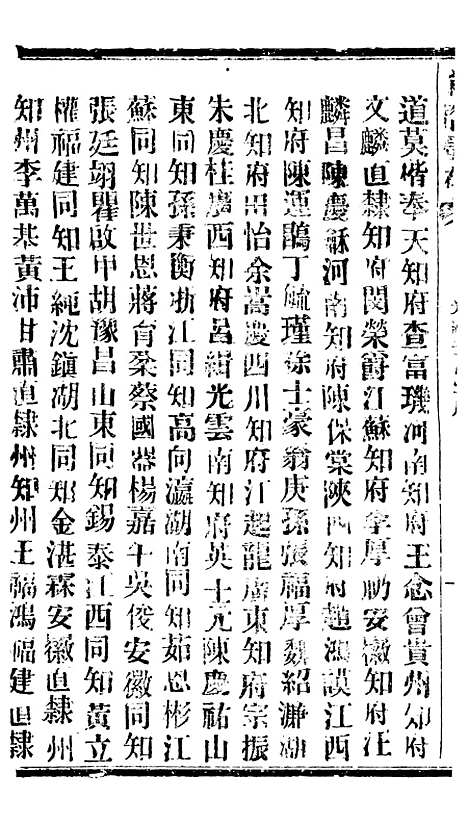 道莫楷奉天知府查富璣河南知府王念曾貴州知府
文麟直隸知府閔榮爵江蘇知府李厚勛安徽知府汪
麟昌陳慶龢河南知府陳保棠陝西知府趙鴻謨江西
知府陳運鵲丁毓瑾徐士豪翁庚孫張福厚魏紹濂湖
北知府思怡余嵩慶四川知府江起龍廣東知府宗振
朱慶桂廣西知府呂緝光雲南知府英士元陳慶祐山
東同知孫秉衡浙江同知高向瀛湖南同知茹恩彬江
蘇同知陳世恩蔣育棻蔡國器楊嘉午吳俊安徽同知
張廷翊瞿啟甲胡豫昌山東同知錫泰江西同知黃立
權福建同知王純沈鎮湖北同知金湛霖安徽直隸州
知州李萬基黃沛甘肅直隸州知州王福鴻福建直隸